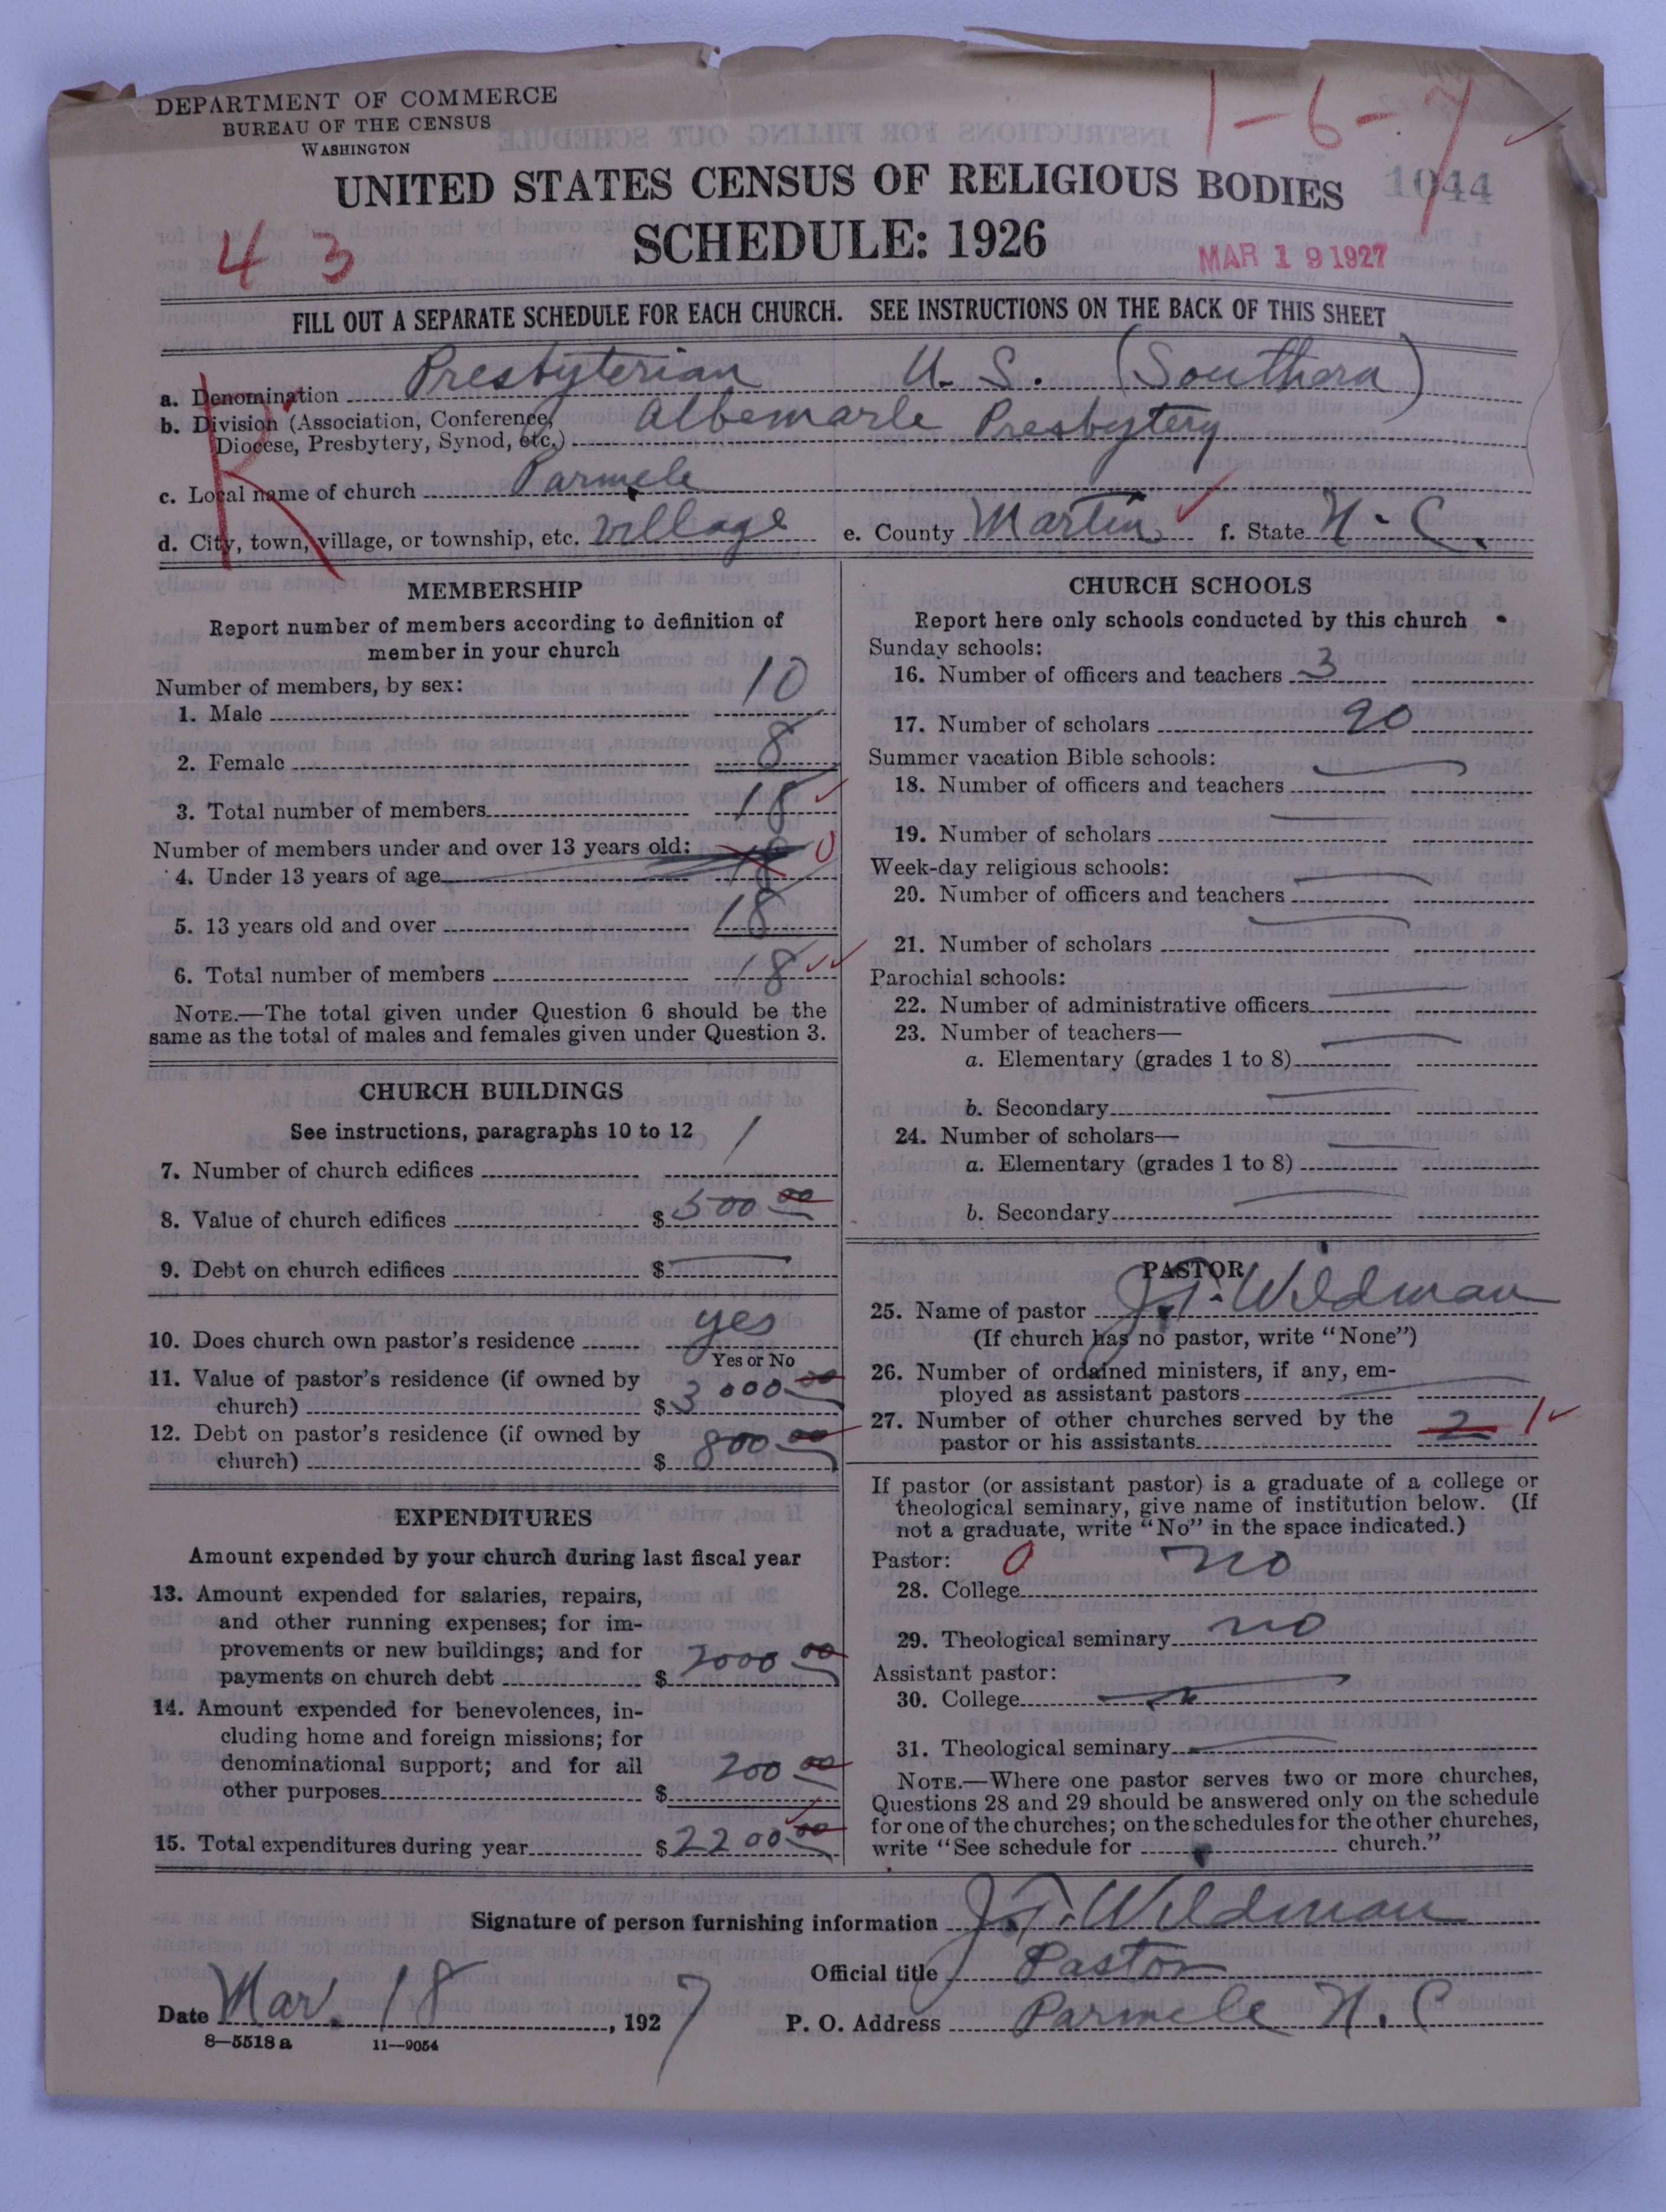 DEPARTMENT OF COMMERCE
BUREAU OF THE CENSUS
WASHINGTON
1-6-7
UNITED STATES CENSUS OF RELIGIOUS BODIES
1044
43
SCHEDULE: 1926
MAR 19 1927
FILL OUT A SEPARATE SCHEDULE FOR EACH CHURCH. SEE INSTRUCTIONS ON THE BACK OF THIS SHEET
R
a. Denomination Presbyterian U. S. (Southern)
b. Division (Association, Conference, Diocese, Presbytery, Synod, etc.) Albemarle Presbytery
c. Local name of church Parmele
d. City, town, village, or township, etc. village e. County Martin f. State N. C.
MEMBERSHIP
Report number of members according to definition of
member in your church
Number of members, by sex:
1. Male 10
2. Female 8
3. Total number of members 18
Number of members under and over 13 years old:
4. Under 13 years of age 18 0
5. 13 years old and over 18
6. Total number of members 18
NOTE.—The total given under Question 6 should be the
same as the total of males and females given under Question 3.
CHURCH BUILDINGS
See instructions, paragraphs 10 to 12
7. Number of church edifices 1
8. Value of church edifices $ 500 00
9. Debt on church edifices $ —
10. Does church own pastor's residence yes
Yes or No
11. Value of pastor's residence (if owned by
church) $ 3000 00
12. Debt on pastor's residence (if owned by
church) $ 800 00
EXPENDITURES
Amount expended by your church during last fiscal year
13. Amount expended for salaries, repairs,
and other running expenses; for im-
provements or new buildings; and for
payments on church debt $ 2000 00
14. Amount expended for benevolences, in-
cluding home and foreign missions; for
denominational support; and for all
other purposes $ 200 00
15. Total expenditures during year $ 2200 00
CHURCH SCHOOLS
Report here only schools conducted by this church
Sunday schools:
16. Number of officers and teachers 3
17. Number of scholars 20
Summer vacation Bible schools:
18. Number of officers and teachers —
19. Number of scholars —
Week-day religious schools:
20. Number of officers and teachers —
21. Number of scholars —
Parochial schools:
22. Number of administrative officers —
23. Number of teachers—
a. Elementary (grades 1 to 8) —
b. Secondary —
24. Number of scholars—
a. Elementary (grades 1 to 8) —
b. Secondary —
PASTOR
25. Name of pastor J. T. Wildman
(If church has no pastor, write "None")
26. Number of ordained ministers, if any, em-
ployed as assistant pastors —
27. Number of other churches served by the
pastor or his assistants 2 1
If pastor (or assistant pastor) is a graduate of a college or
theological seminary, give name of institution below. (If
not a graduate, write "No" in the space indicated.)
Pastor: 0
28. College no
29. Theological seminary no
Assistant pastor:
30. College —
31. Theological seminary —
NOTE.—Where one pastor serves two or more churches,
Questions 28 and 29 should be answered only on the schedule
for one of the churches; on the schedules for the other churches,
write "See schedule for church."
Signature of person furnishing information J. T. Wildman
Official title Pastor
Date Mar. 18, 1927 P. O. Address Parmele N. C
8—5518 a 11—9054